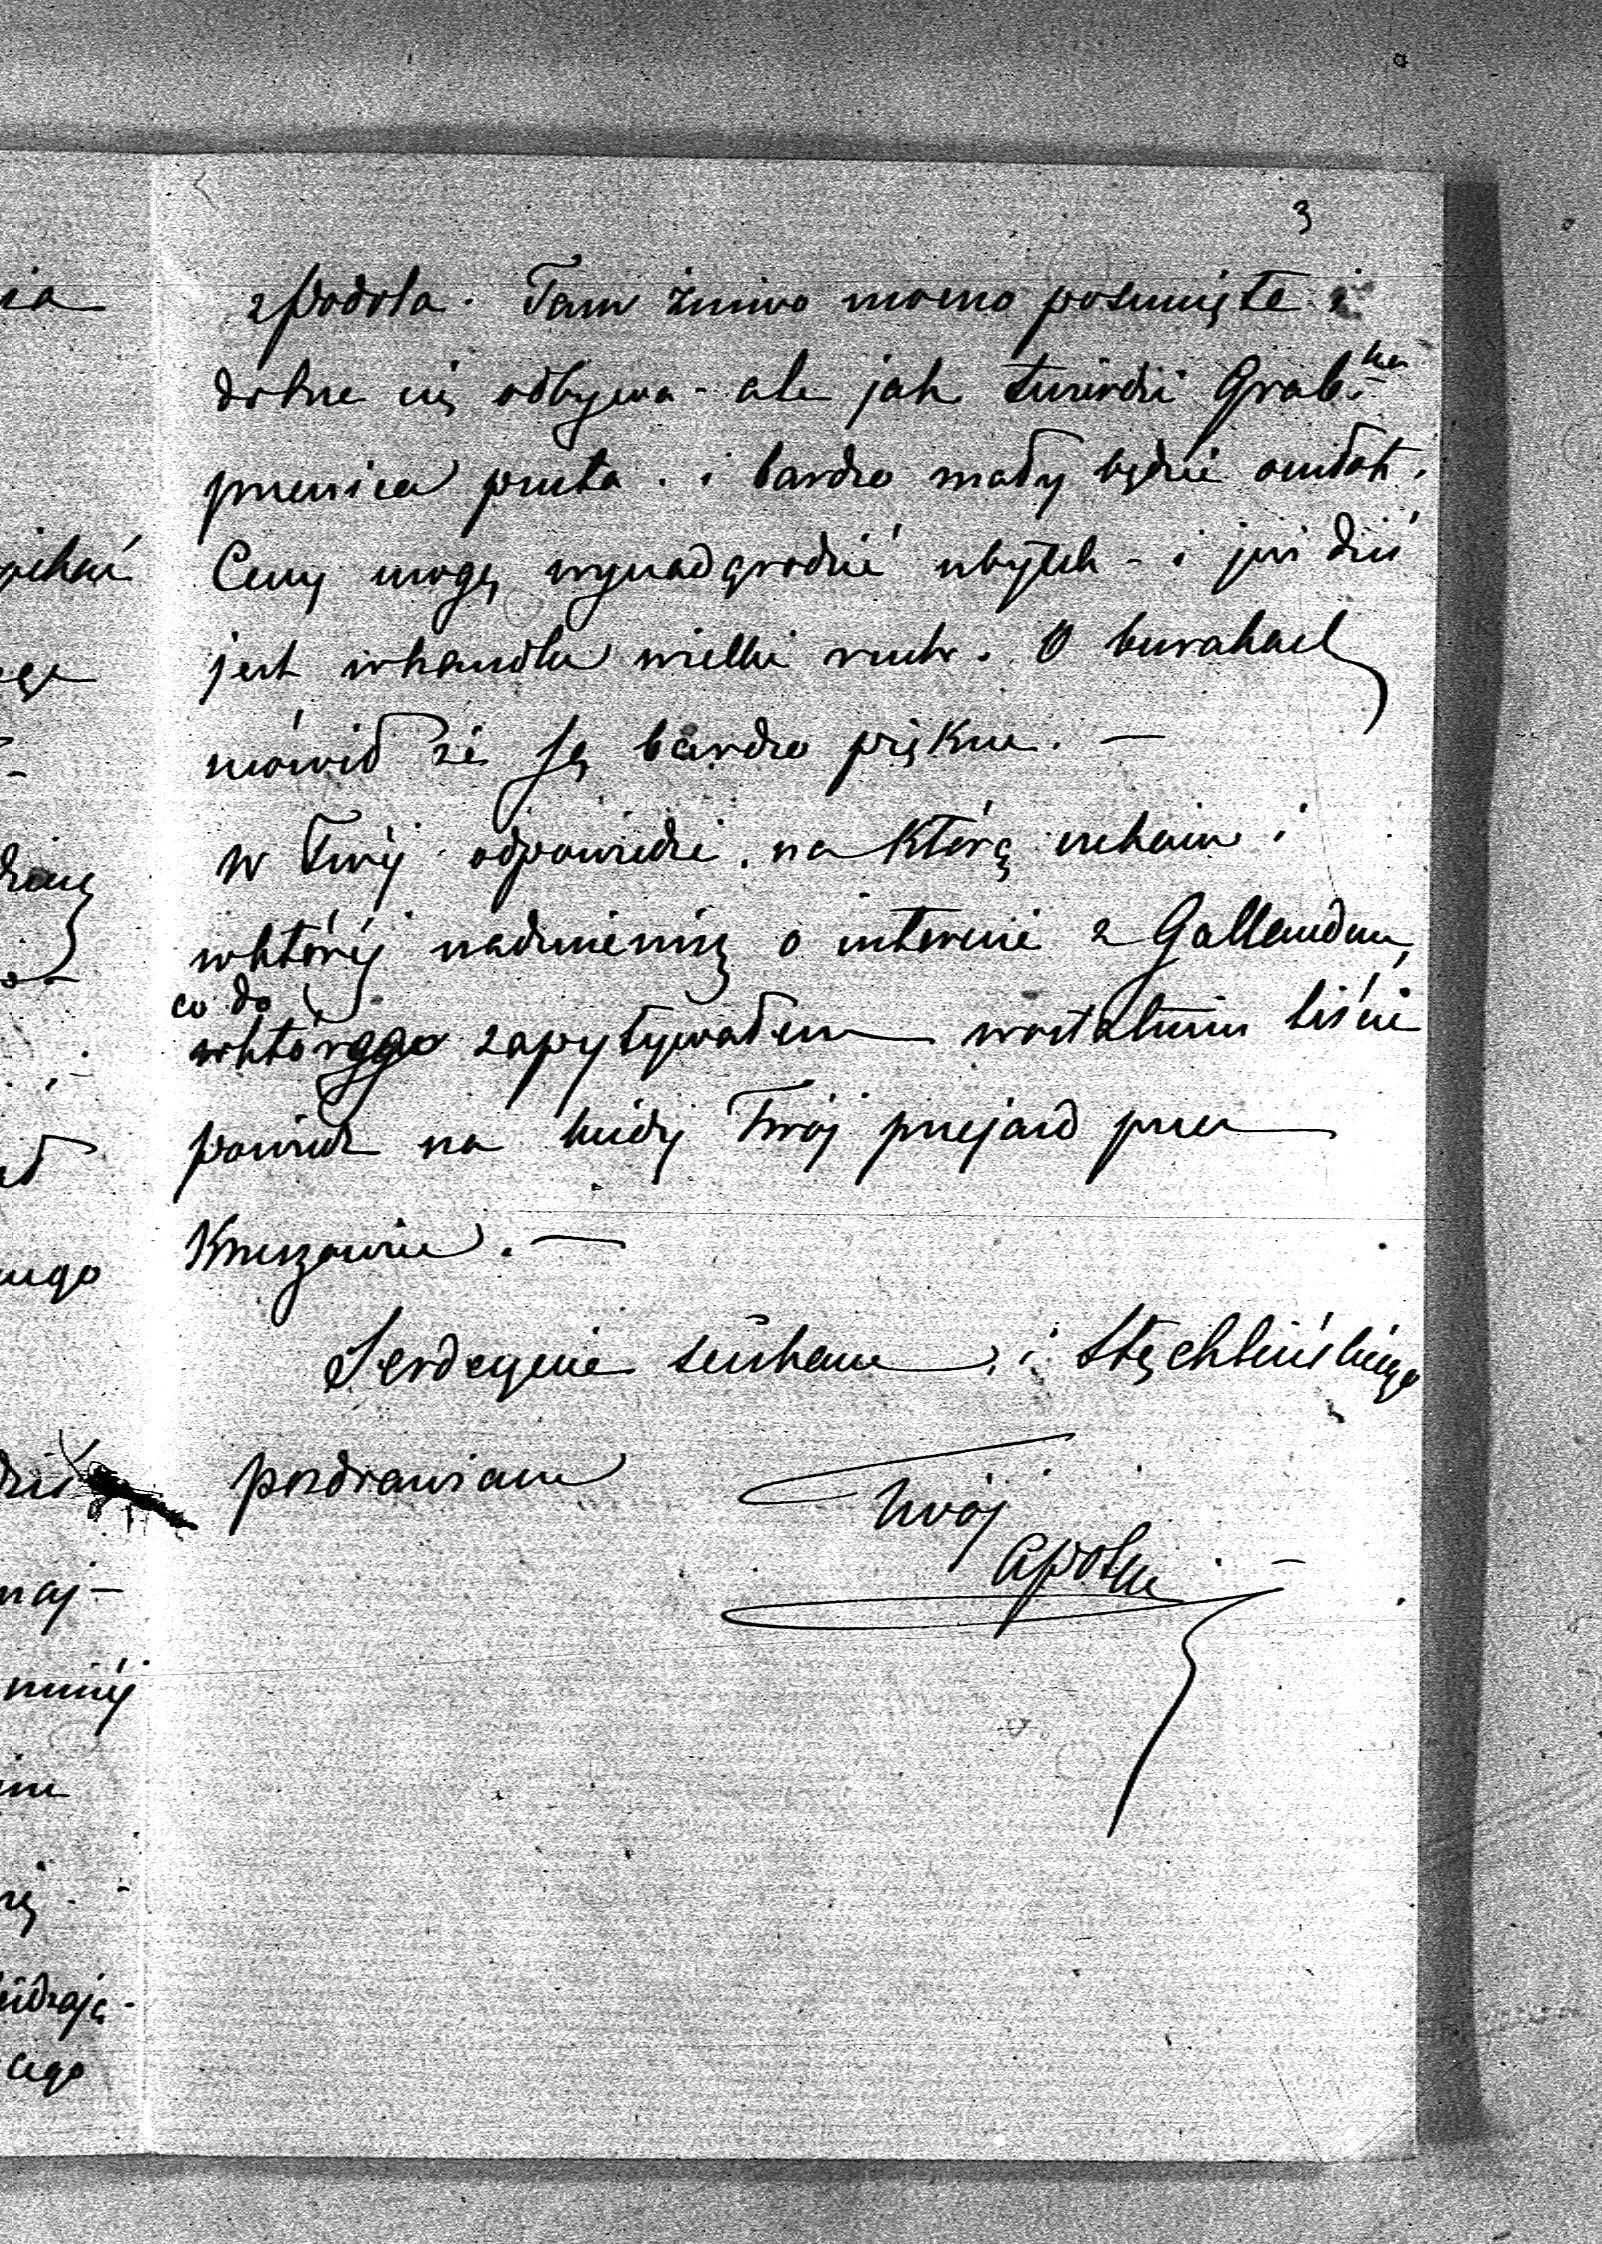 3
z Podola. Tam żniwo mocno posunięte i
dobrze się odbywa - ale jak twierdzi Grab.
pszenica pusta . i bardzo mały będzie omłot.
Ceny mogą wynadgrodzić ubytek - i już dziś
jest w handlu wielki ruch. O burakach
mówił że są bardzo piękne. —
w Twéj odpowiedzi . na którą czekam i
w któréj nadmienisz o interesie z Gallandem,
co do
w którego zapytywałem w ostatnim liście
powiedz na kiedy Twój przejazd przez
Serdecznie ściskam i Stęchlińskiego
pozdrawiam
Twój